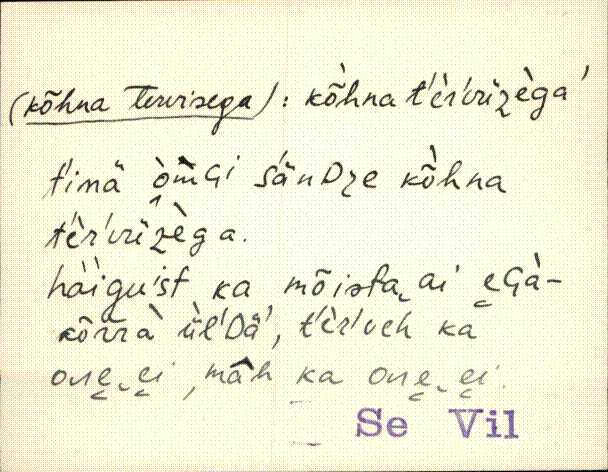 (kõhna tervisega): kõ̀hna t'èr'vìzèga'
t'imä òm̀Gi s'änDze kõ̀hna
t'èr'vìzèga.
hàiguist ka mõista‿ai e̮Gà-
kõrra ǜl'Dä', t'èr'veh ka
one̮‿e̮i, mâh ka one̮‿e̮i.
Se Vil